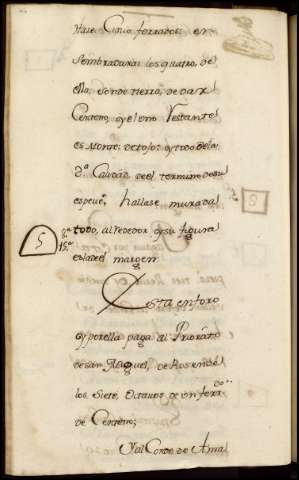 Haze Cinco ferrados en
sembradura los quatro, de
ella, son de tierra, de dar
Centeno, oy el otro restante
es Monte: de tojos, oy todo de la
2ª Calidâd en el termino de su
espeuê, hallase murada
todo, al rededor oy su figura
es la del margen
5
Esta en foro
oy por ella paga al Priorato
de san Miguel, de Rosende
los Siete, Octavos de un ferrdo
de Centeno;
Y al Conde de Ama